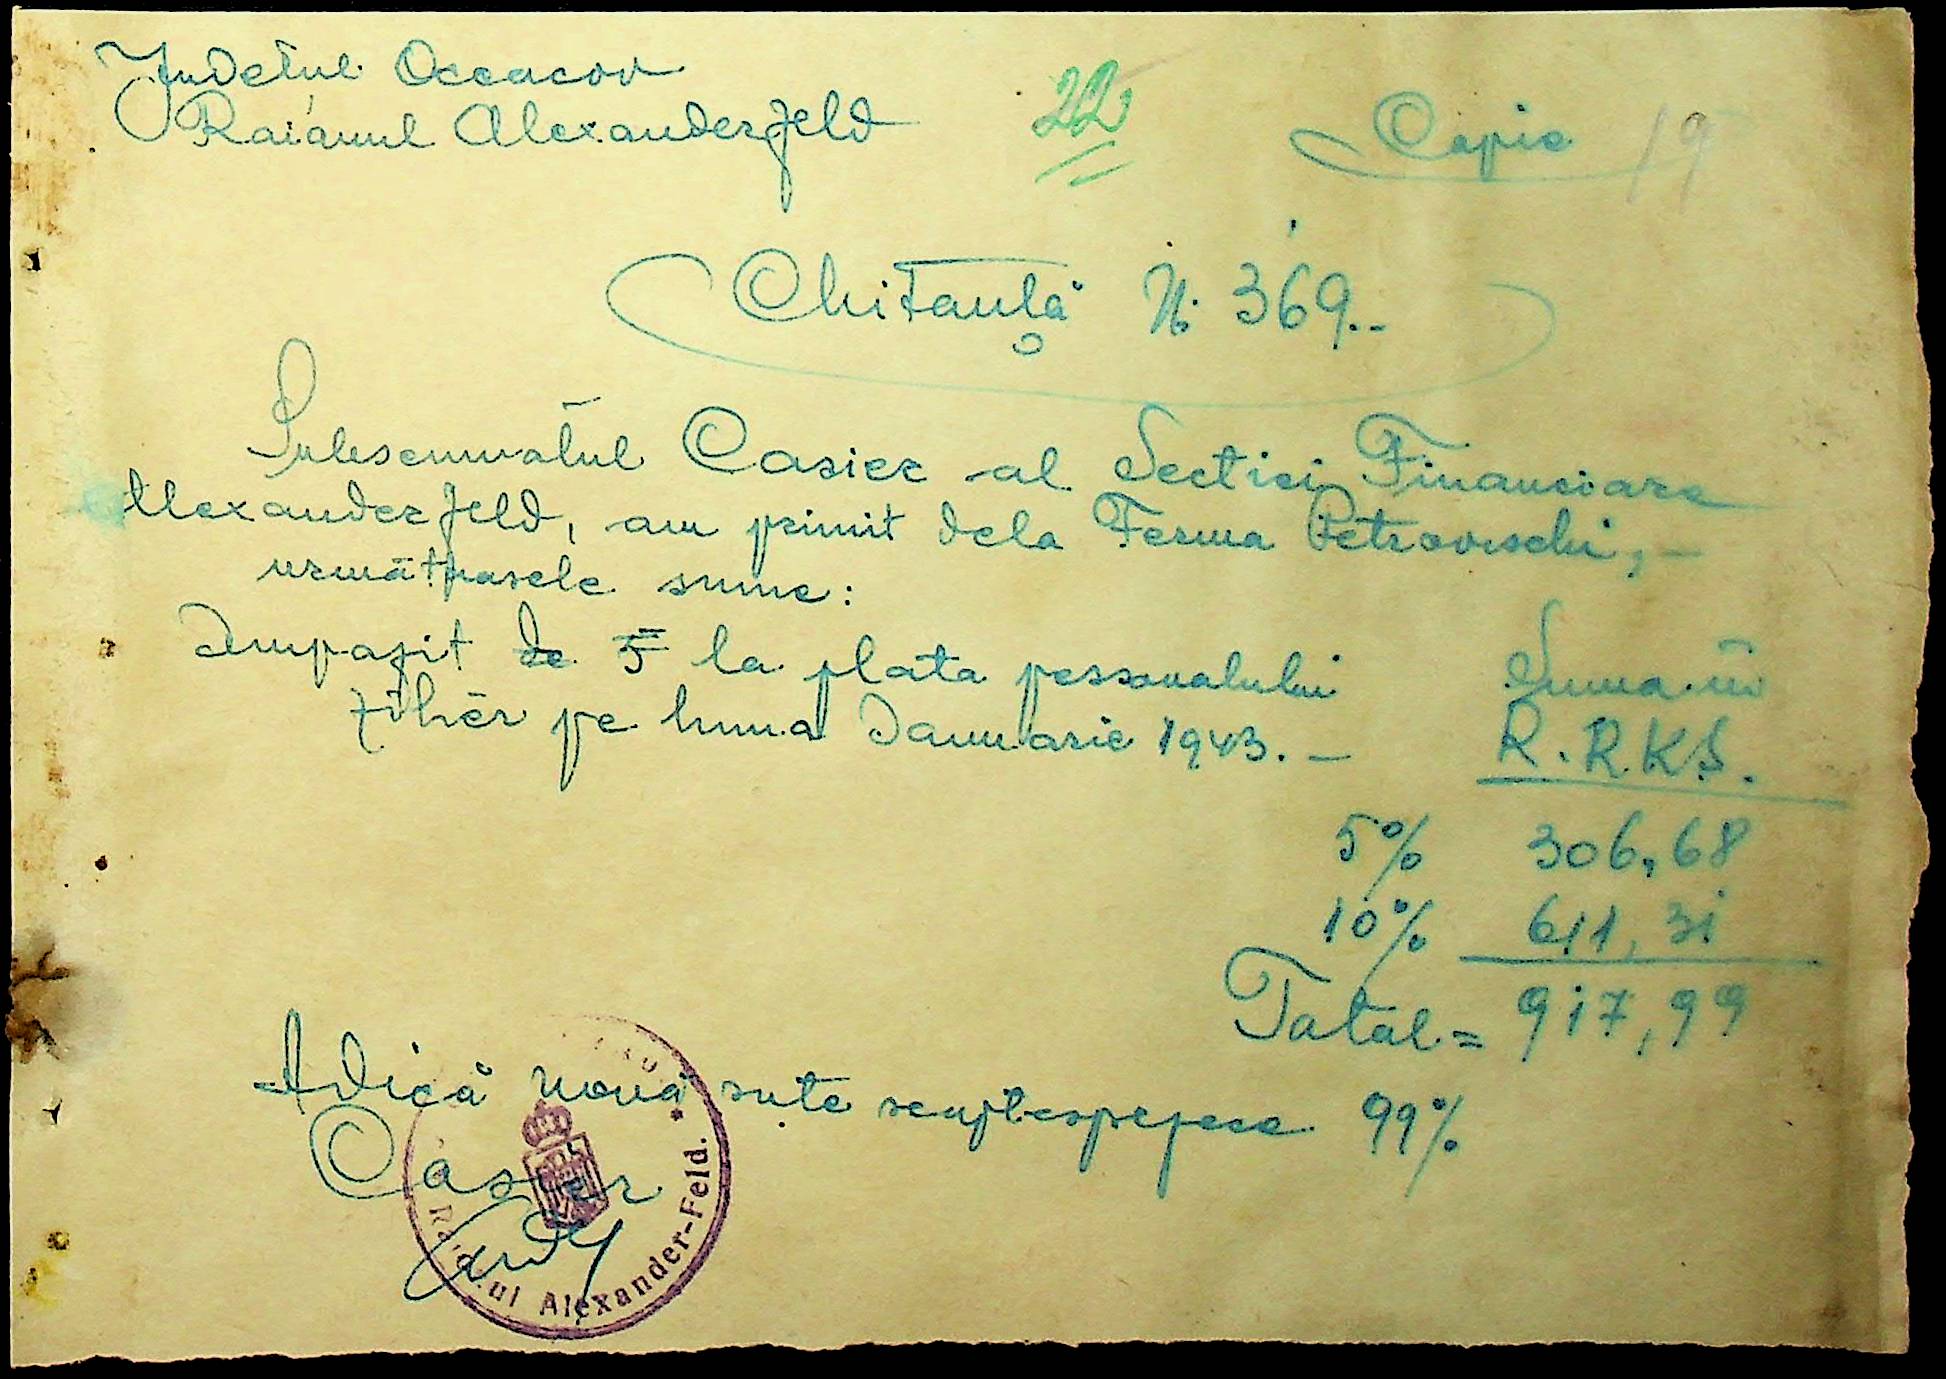 Judetul Oceacov
Raianul Alexanderfeld
22
Copie 19
Chitanţă N. 369.--
Subsemnatul Casier al Sectiei Financiare
Alexanderfeld, am primit dela Ferma Petrovschi, —
următoarele sume:
Impozit de 5 la plata personalului
pe luna Ianuarie 1943. —
Suma în
R.R.K.S.
5% 306,68
10% 611,31
Total = 917,99
Adică nouă sute 99%
Casier
Raionul Alexander-Feld. *